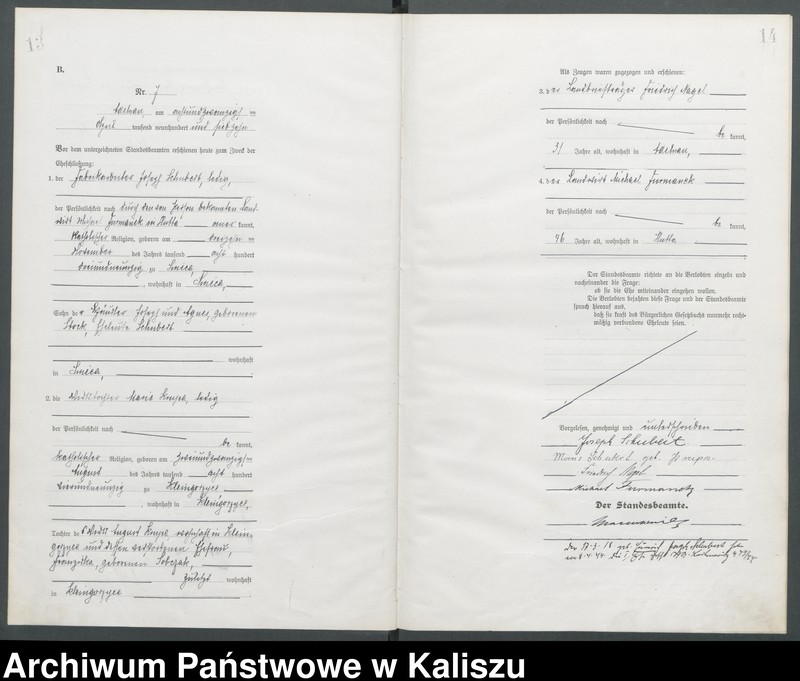 13
B.
Nr. 7
am achtundzwanzigsten
April tausend neunhundert und siebzehn
Vor dem unterzeichneten Standesbeamten erschienen heute zum Zweck der
Eheschließung:
1. der Fabrikarbeiter Joseph Schubert, ledig,
der Persönlichkeit nach durch den von Person bekannten Land-
wirt Michael Furmanek in Hutta anerkannt,
katholischer Religion, geboren am dreizehnten
November des Jahres tausend acht hundert
dreiundneunzig zu
, wohnhaft in
Sohn der Händler Joseph und Agnes, geborenen
Stock, Eheleute Schubert
wohnhaft
in
2. die Wirtstochter Maria Krupa, ledig
der Persönlichkeit nach
be kannt,
katholischer Religion, geboren am zweiundzwanzigsten
August des Jahres tausend acht hundert
vierundneunzig zu
, wohnhaft in
Tochter des Wirt August Krupa wohnhaft in Klein-
und dessen verstorbenen Ehefrau,
Franziska, geborenen Sobczak,
zuletzt wohnhaft
in
14
Als Zeugen waren zugezogen und erschienen:
3. der Landbriefträger Friedrich Nagel
der Persönlichkeit nach
be kannt,
31 Jahre alt, wohnhaft in
4. der Landwirt Michael Furmanek
der Persönlichkeit nach
be kannt,
46 Jahre alt, wohnhaft in Hutta
Der Standesbeamte richtete an die Verlobten einzeln und
nacheinander die Frage:
ob sie die Ehe miteinander eingehen wollen.
Die Verlobten bejahten diese Frage und der Standesbeamte
sprach hierauf aus,
daß sie kraft des Bürgerlichen Gesetzbuchs nunmehr recht-
mäßig verbundene Eheleute seien.
Vorgelesen, genehmigt und unterschrieben
Joseph Schubert
Maria Schubert geb. Krupa
Friedrich Nagel
Michael
Der Standesbeamte.
Archiwum Państwowe w Kaliszu